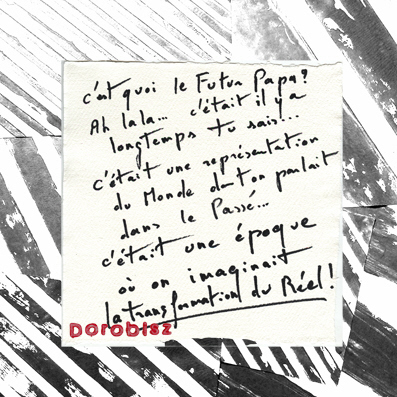 c'est quoi le Futur Papa?
Ah la la... c'était il y a
longtemps tu sais!...
c'était une représentation
du Monde dont on parlait
dans le Passé...
c'était une époque
où on imaginait
la transformation du Réel!
DOROBISZ